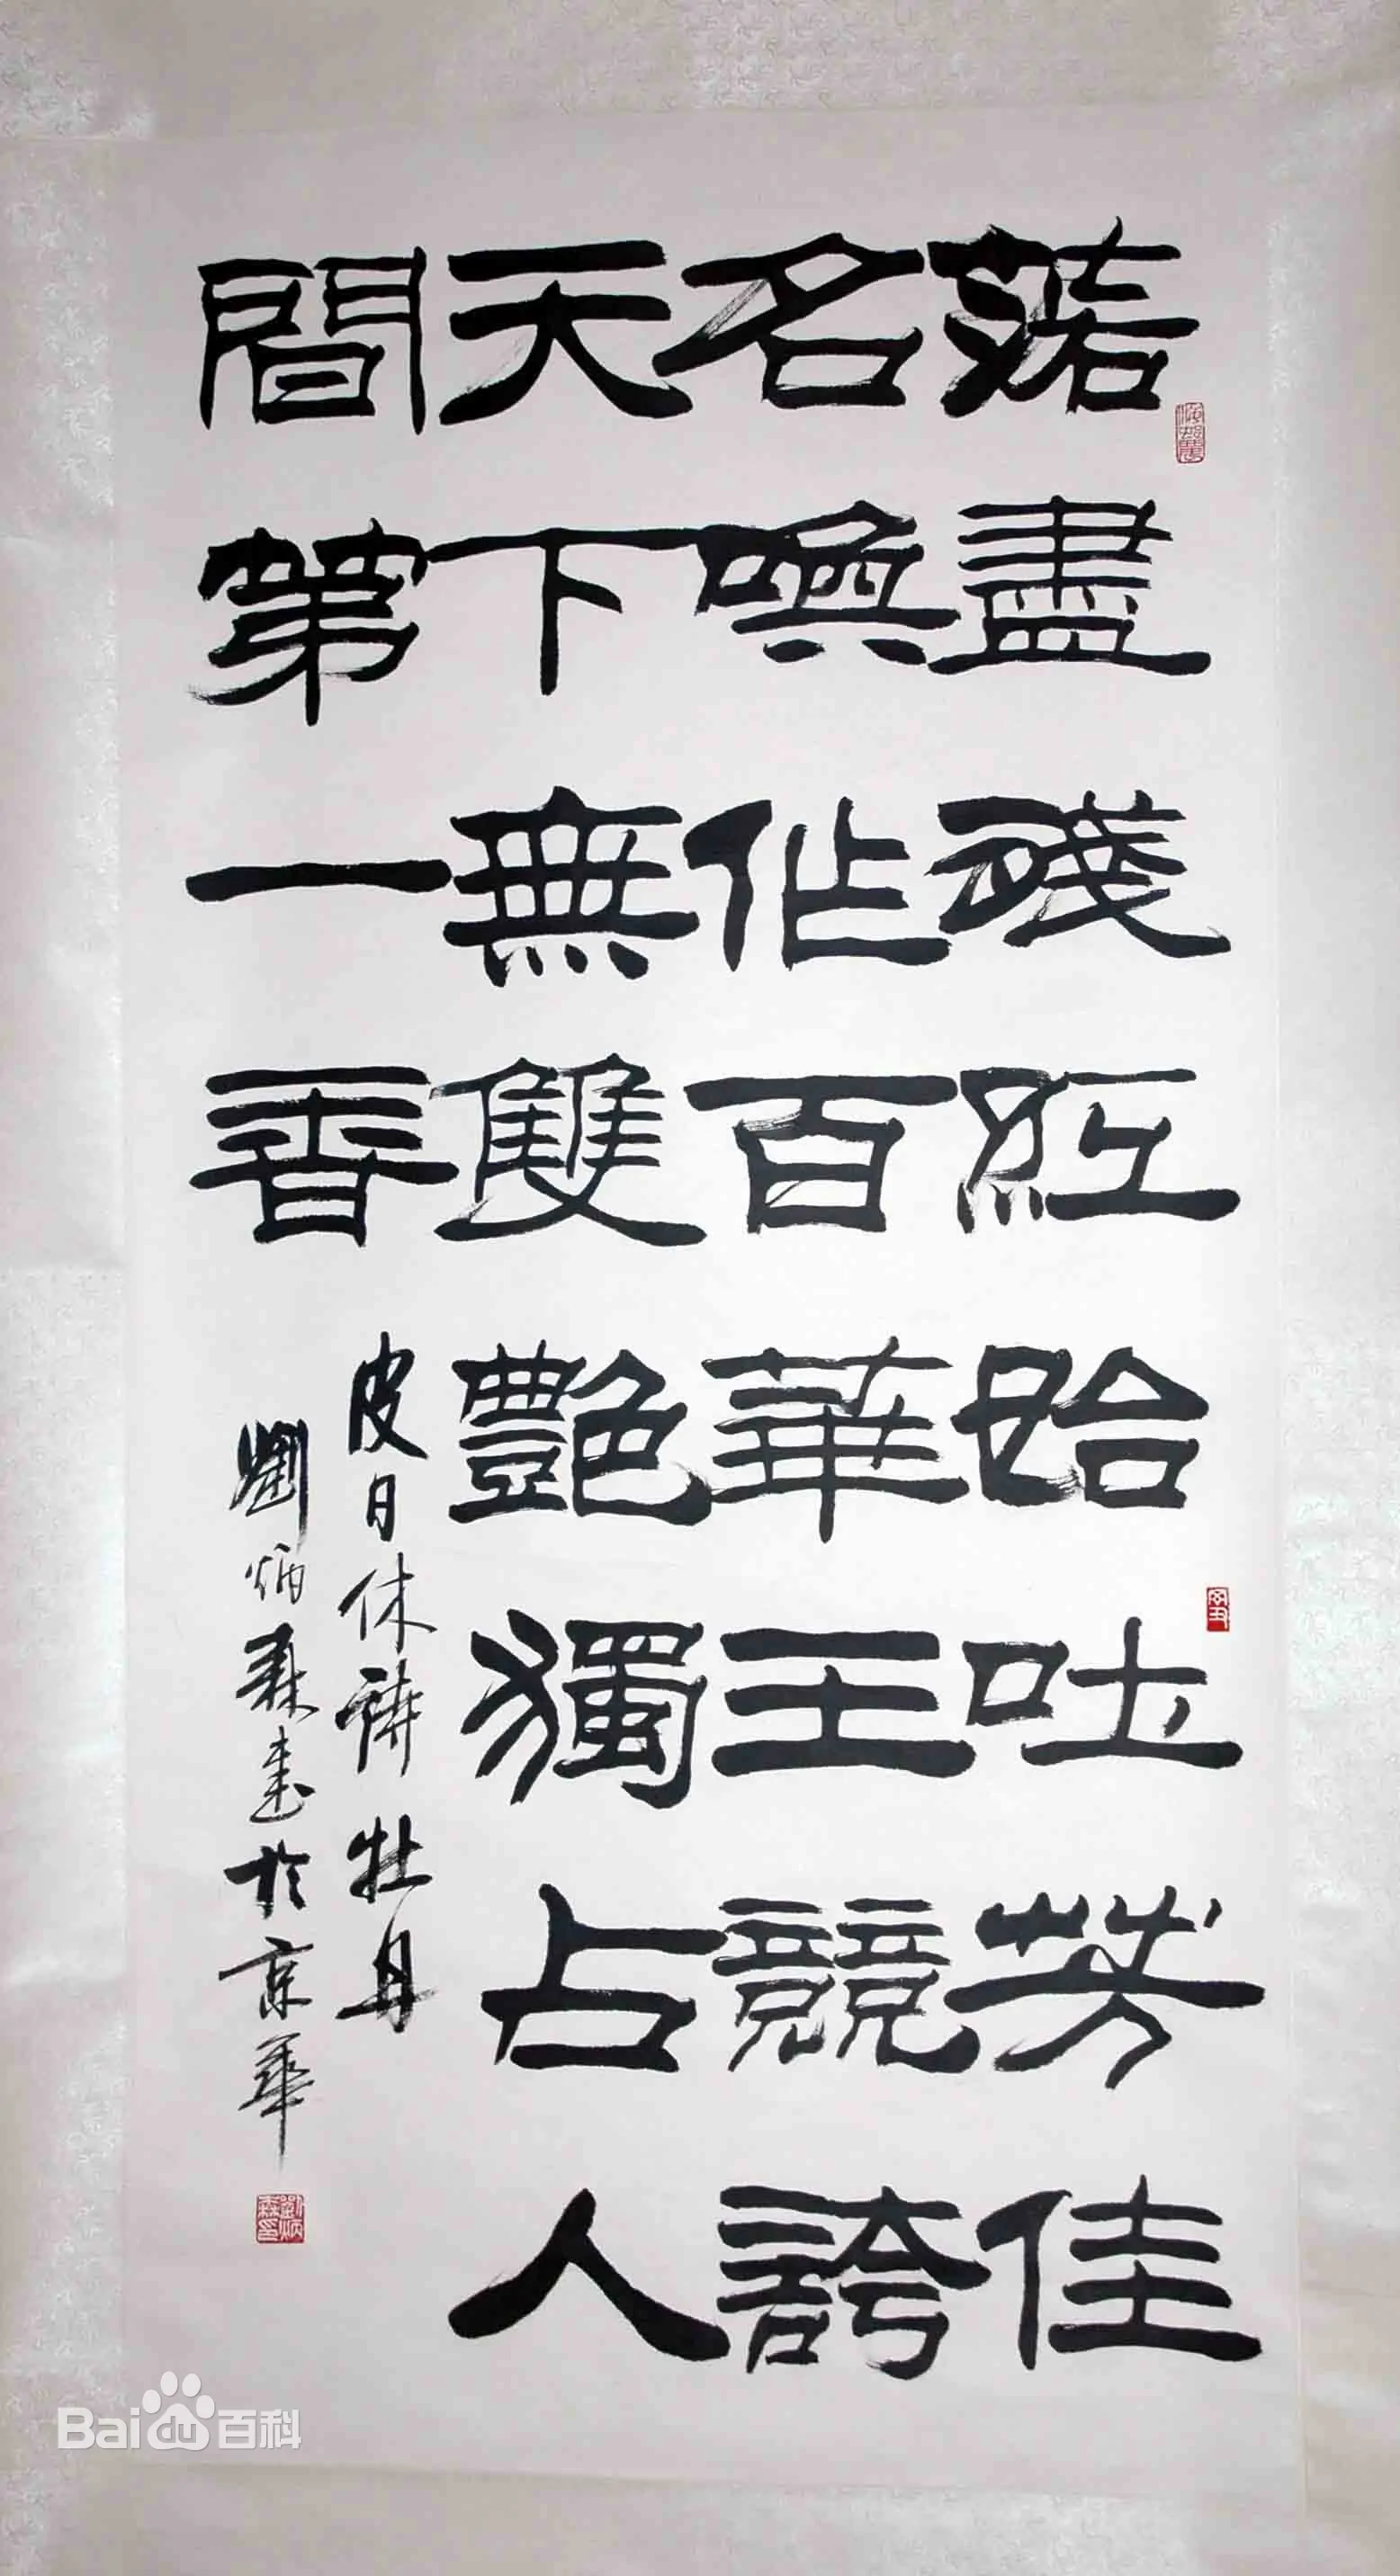 落盡殘紅始吐芳佳
名喚作百華王競誇
天下無雙艷獨占人
間第一香
皮日休詩牡丹
劉炳森書於京華
劉炳森印
Bai百科